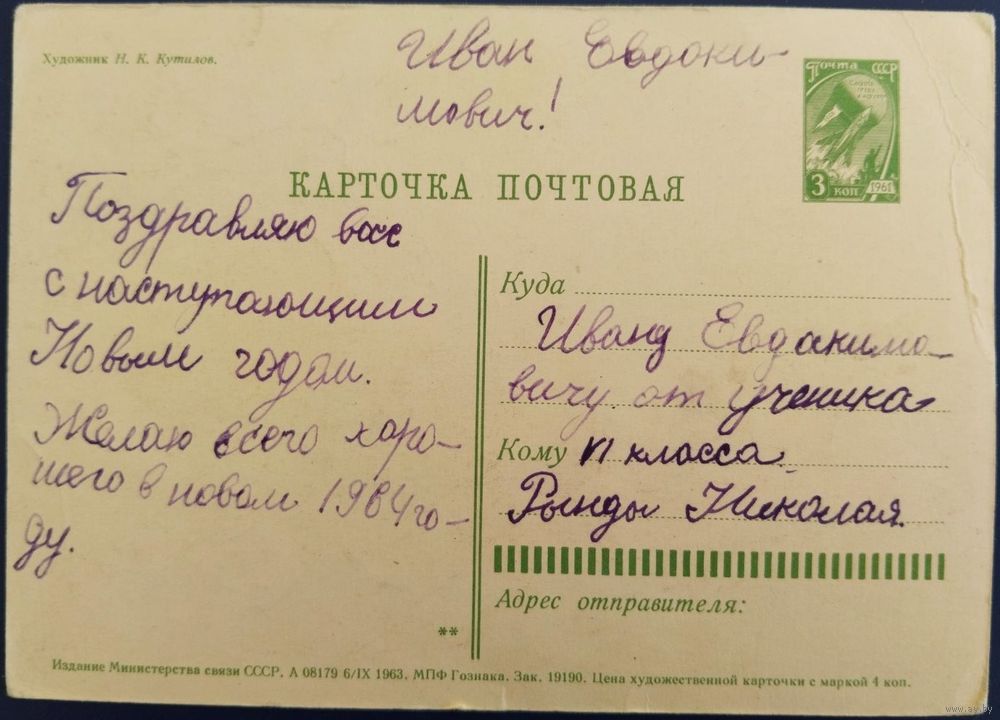 Художник Н. К. Кутилов.
Иван Евдоки-
мович!
ПОЧТА СССР
3 КОП
1961
КАРТОЧКА ПОЧТОВАЯ
Поздравляю вас
с наступающим
Новым годом.
Желаю всего харо-
шего в новом 1964 го-
ду.
**
Куда
Ивану Евдакима-
вичу от ученика
Кому VI класса
Рынды Николая.
Адрес отправителя:
Издание Министерства связи СССР. А 08179 6/IX 1963. МПФ Гознака. Зак. 19190. Цена художественной карточки с маркой 4 коп.
www.ay.by